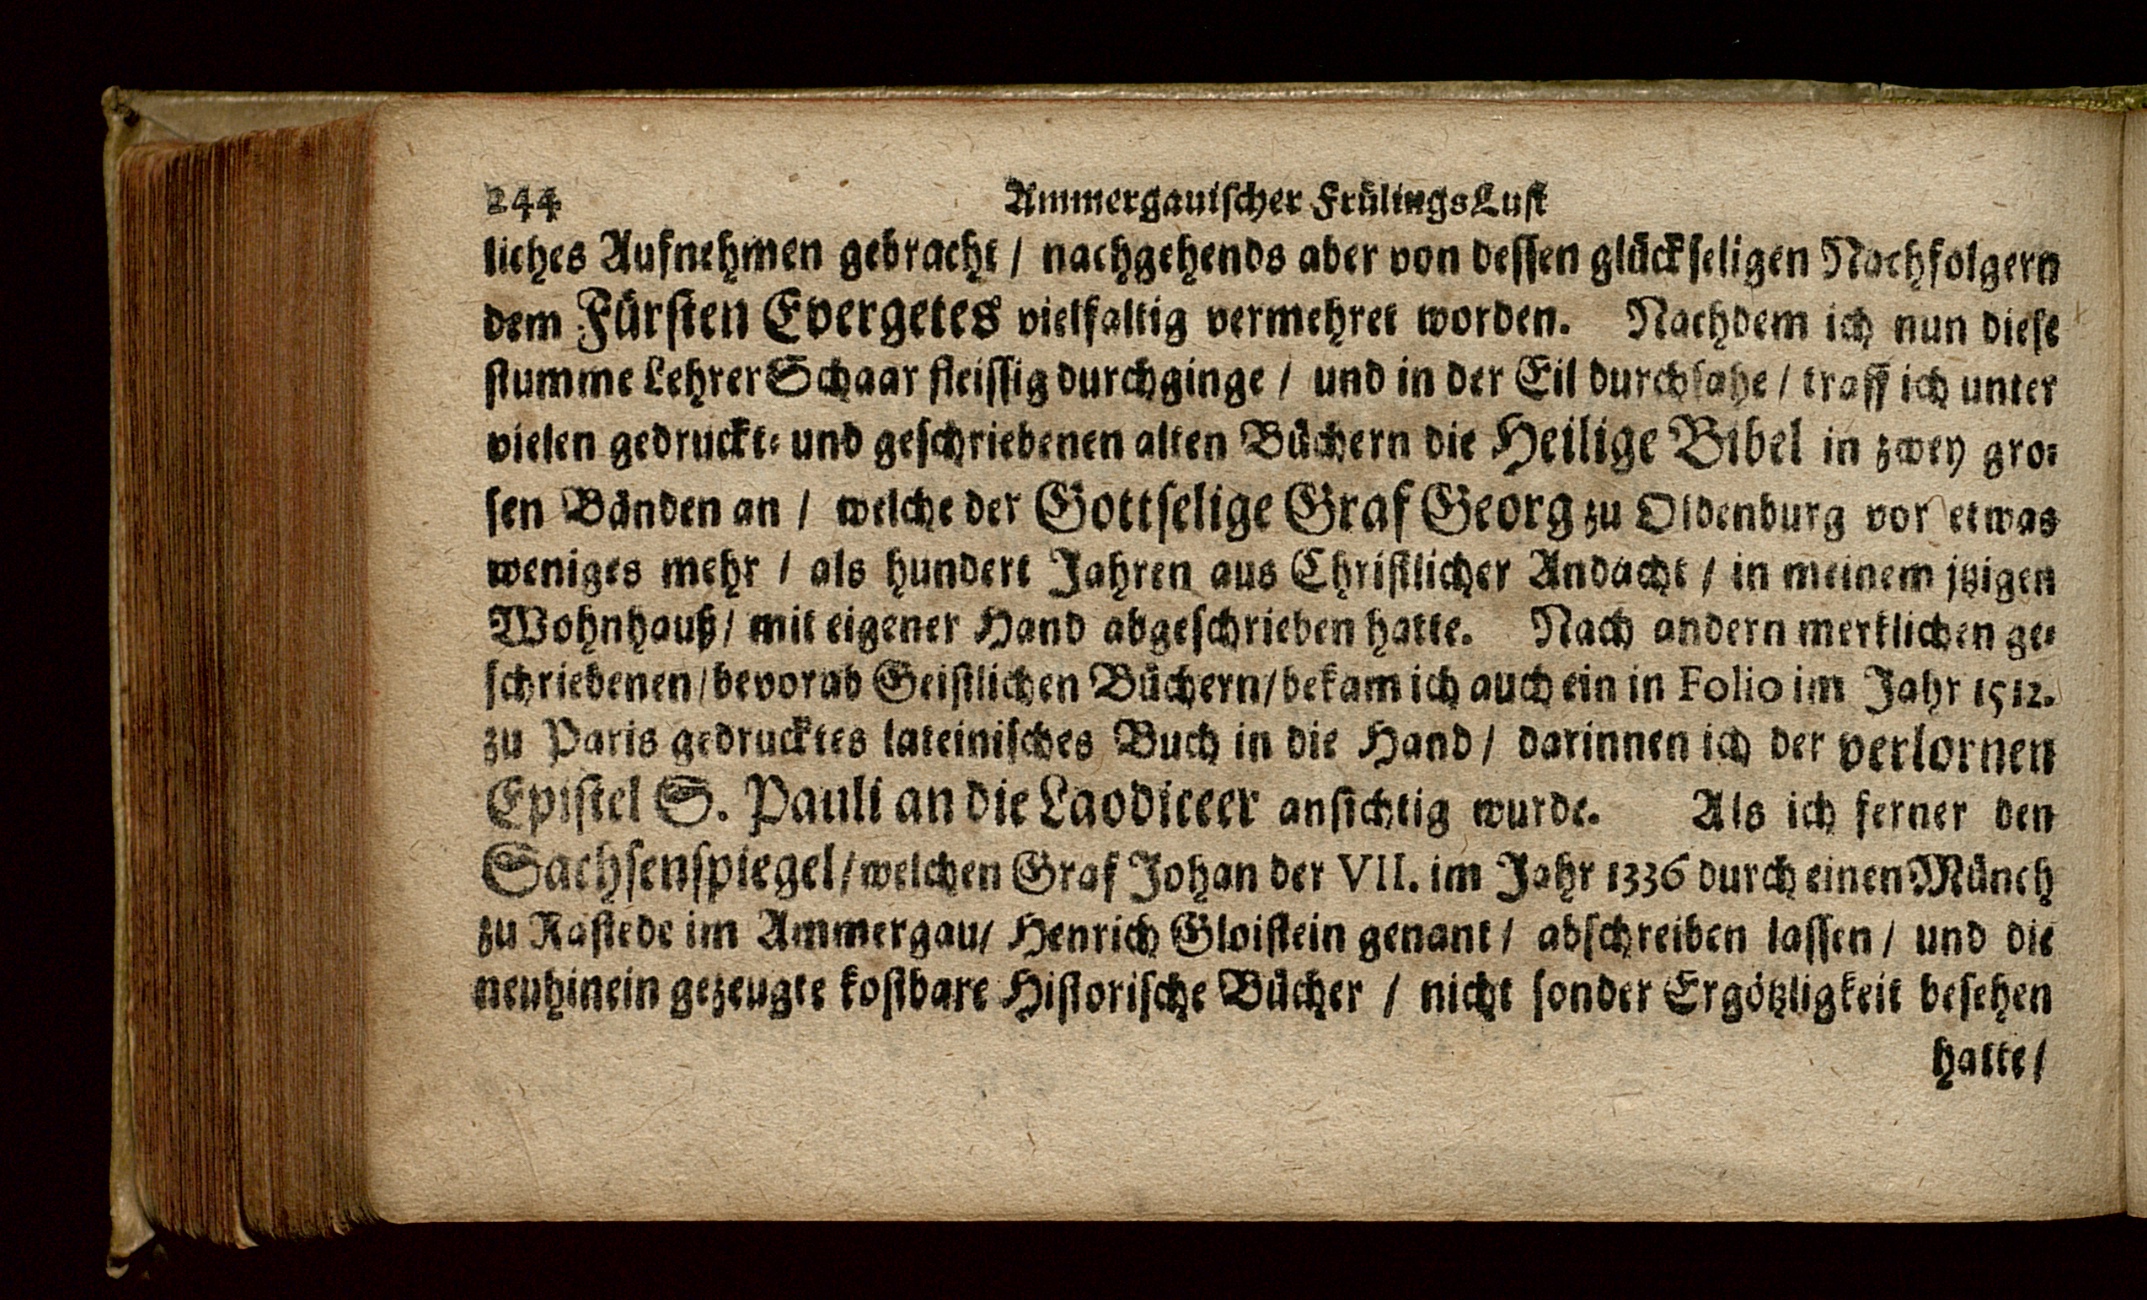 244 Ammergauischer FrülingsLust
liches Aufnehmen gebracht / nachgehends aber von dessen glückseligen Nachfolgern
dem Fürsten Evergetes vielfaltig vermehret worden. Nachdem ich nun diese
stumme LehrerSchaar fleissig durchginge / und in der Eil durchsahe / traff ich unter
vielen gedruckt- und geschriebenen alten Büchern die Heilige Bibel in zwey gro-
sen Bänden an / welche der Gottselige Graf Georg zu Oldenburg vor etwas
weniges mehr / als hundert Jahren aus Christlicher Andacht / in meinem jtzigen
Wohnhauß / mit eigener Hand abgeschrieben hatte. Nach andern merklichen ge-
schriebenen / bevorab Geistlichen Büchern / bekam ich auch ein in Folio im Jahr 1512.
zu Paris gedrucktes lateinisches Buch in die Hand / darinnen ich der verlornen
Epistel S. Pauli an die Laodiceer ansichtig wurde. Als ich ferner den
Sachsenspiegel / welchen Graf Johan der VII. im Jahr 1336 durch einen Münch
zu Rastede im Ammergau / Henrich Gloistein genant / abschreiben lassen / und die
neuhinein gezeugte kostbare Historische Bücher / nicht sonder Ergötzligkeit besehen
hatte /